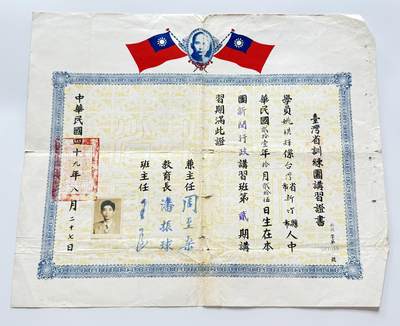 臺灣省訓練團講習證書
學員姚琪祥係台灣省新竹縣市人中
華民國貳拾壹年拾月貳拾伍日生在本
團新聞行政講習班第貳期講
習期滿此證
兼主任 周至柔
教育長 潘振球
班主任
中華民國四十九年八月二十七日